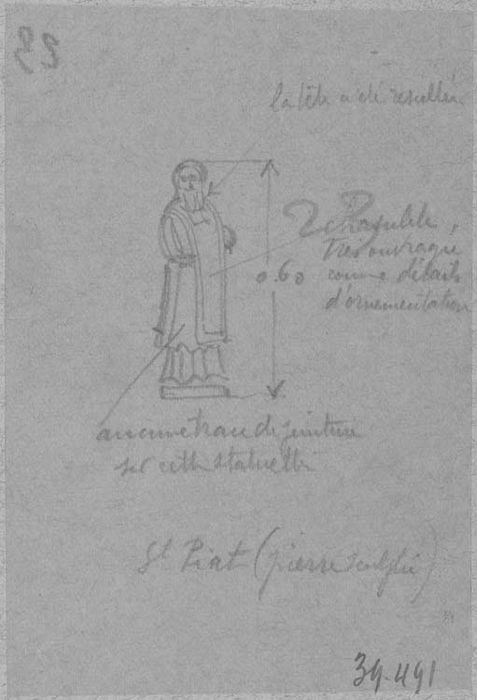 33
la tête a été rescellée
Chasuble,
très ouvragée
comme détails
d'ornementation
0.60
aucune trace de peinture
sur cette statuette
St Piat (pierre sculptée)
39.491